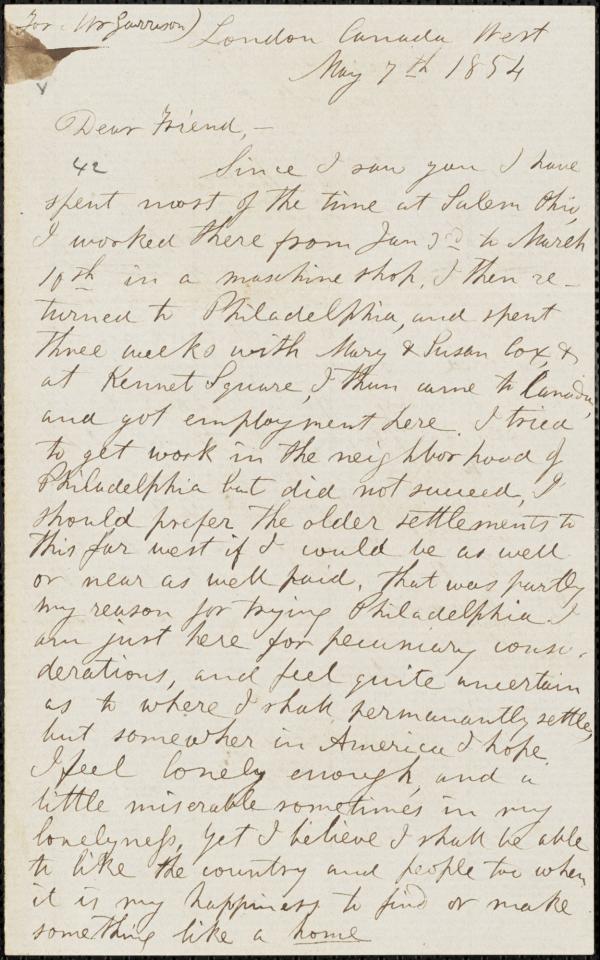 For Mr Garrison)
London Canada West
May 7th 1854
Dear Friend,—
42 Since I saw you I have
spent most of the time at Salem Ohio,
I worked there from Jan 3rd to March
10th in a maschine shop. I then re-
turned to Philadelphia, and spent
three weeks with Mary & Susan Cox, &
at Kennet Square, I than came to Canada,
and got employment here. I tried
to get work in the neighborhood of
Philadelphia but did not succeed, I
should prefer the older settlements to
this far west if I could be as well
or near as well paid. that was partly
my reason for trying Philadelphia. I
am just here for pecuniary consi-
derations, and feel quite uncertain
as to where I shall permanantly settle,
but somewher in America I hope.
I feel lonely enough, and a
little miserable sometimes in my
lonelyness, Yet I believe I shall be able
to like the country and people too when
it is my happiness to find or make
something like a home